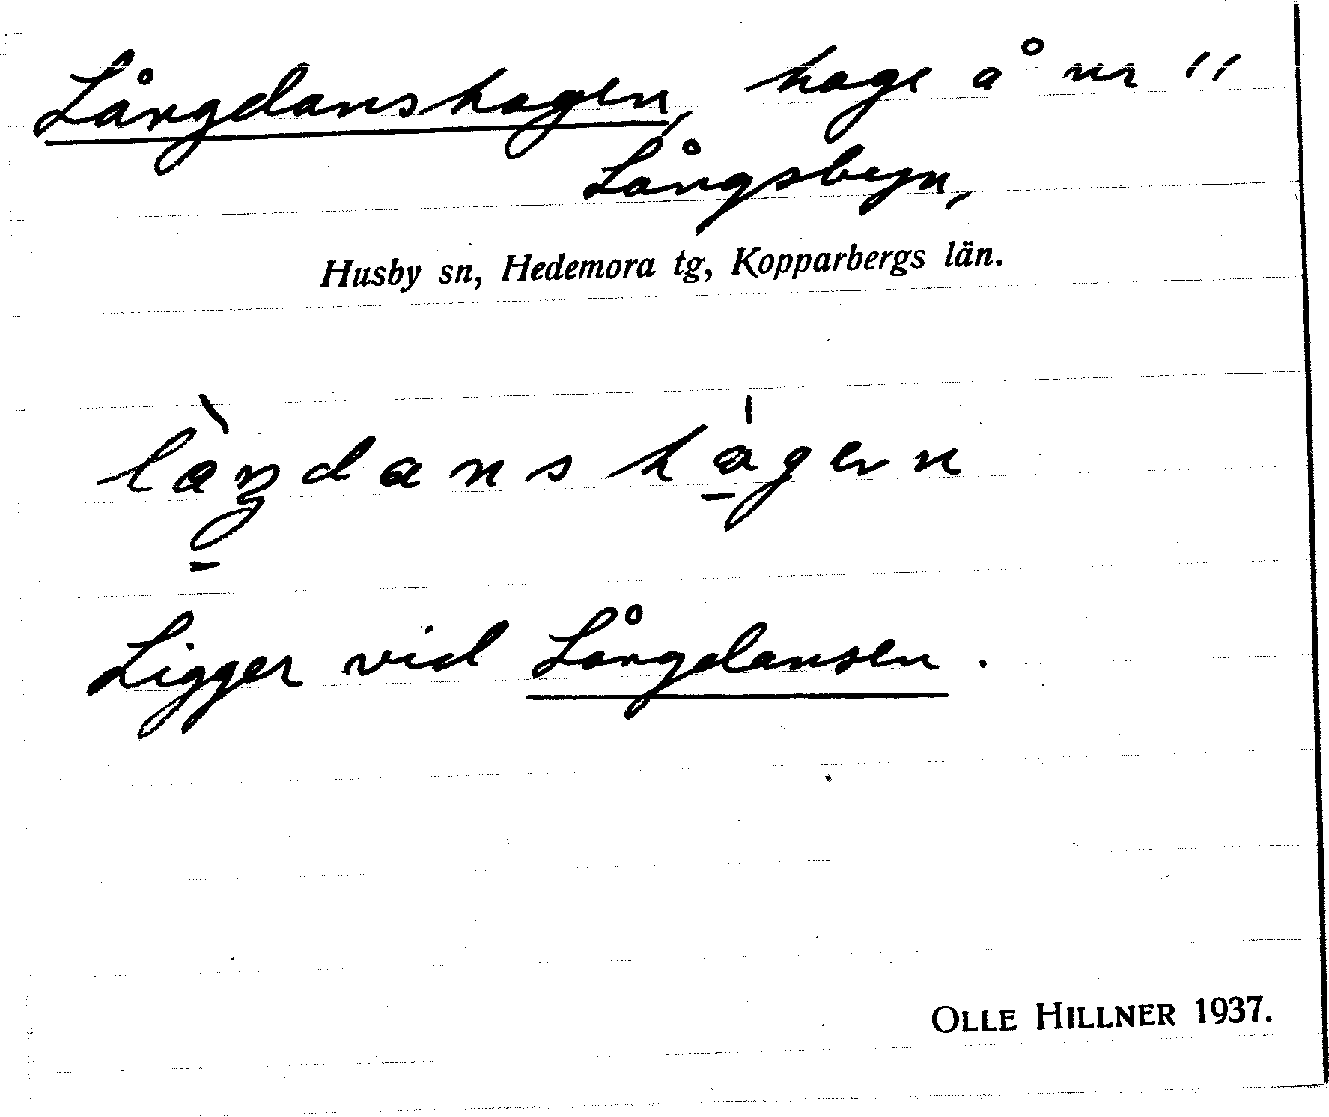 Långdanshagen, hage å nr 11
Långsbyn,
Husby sn, Hedemora tg, Kopparbergs län.
Ligger vid Långdansen.
OLLE HILLNER 1937.